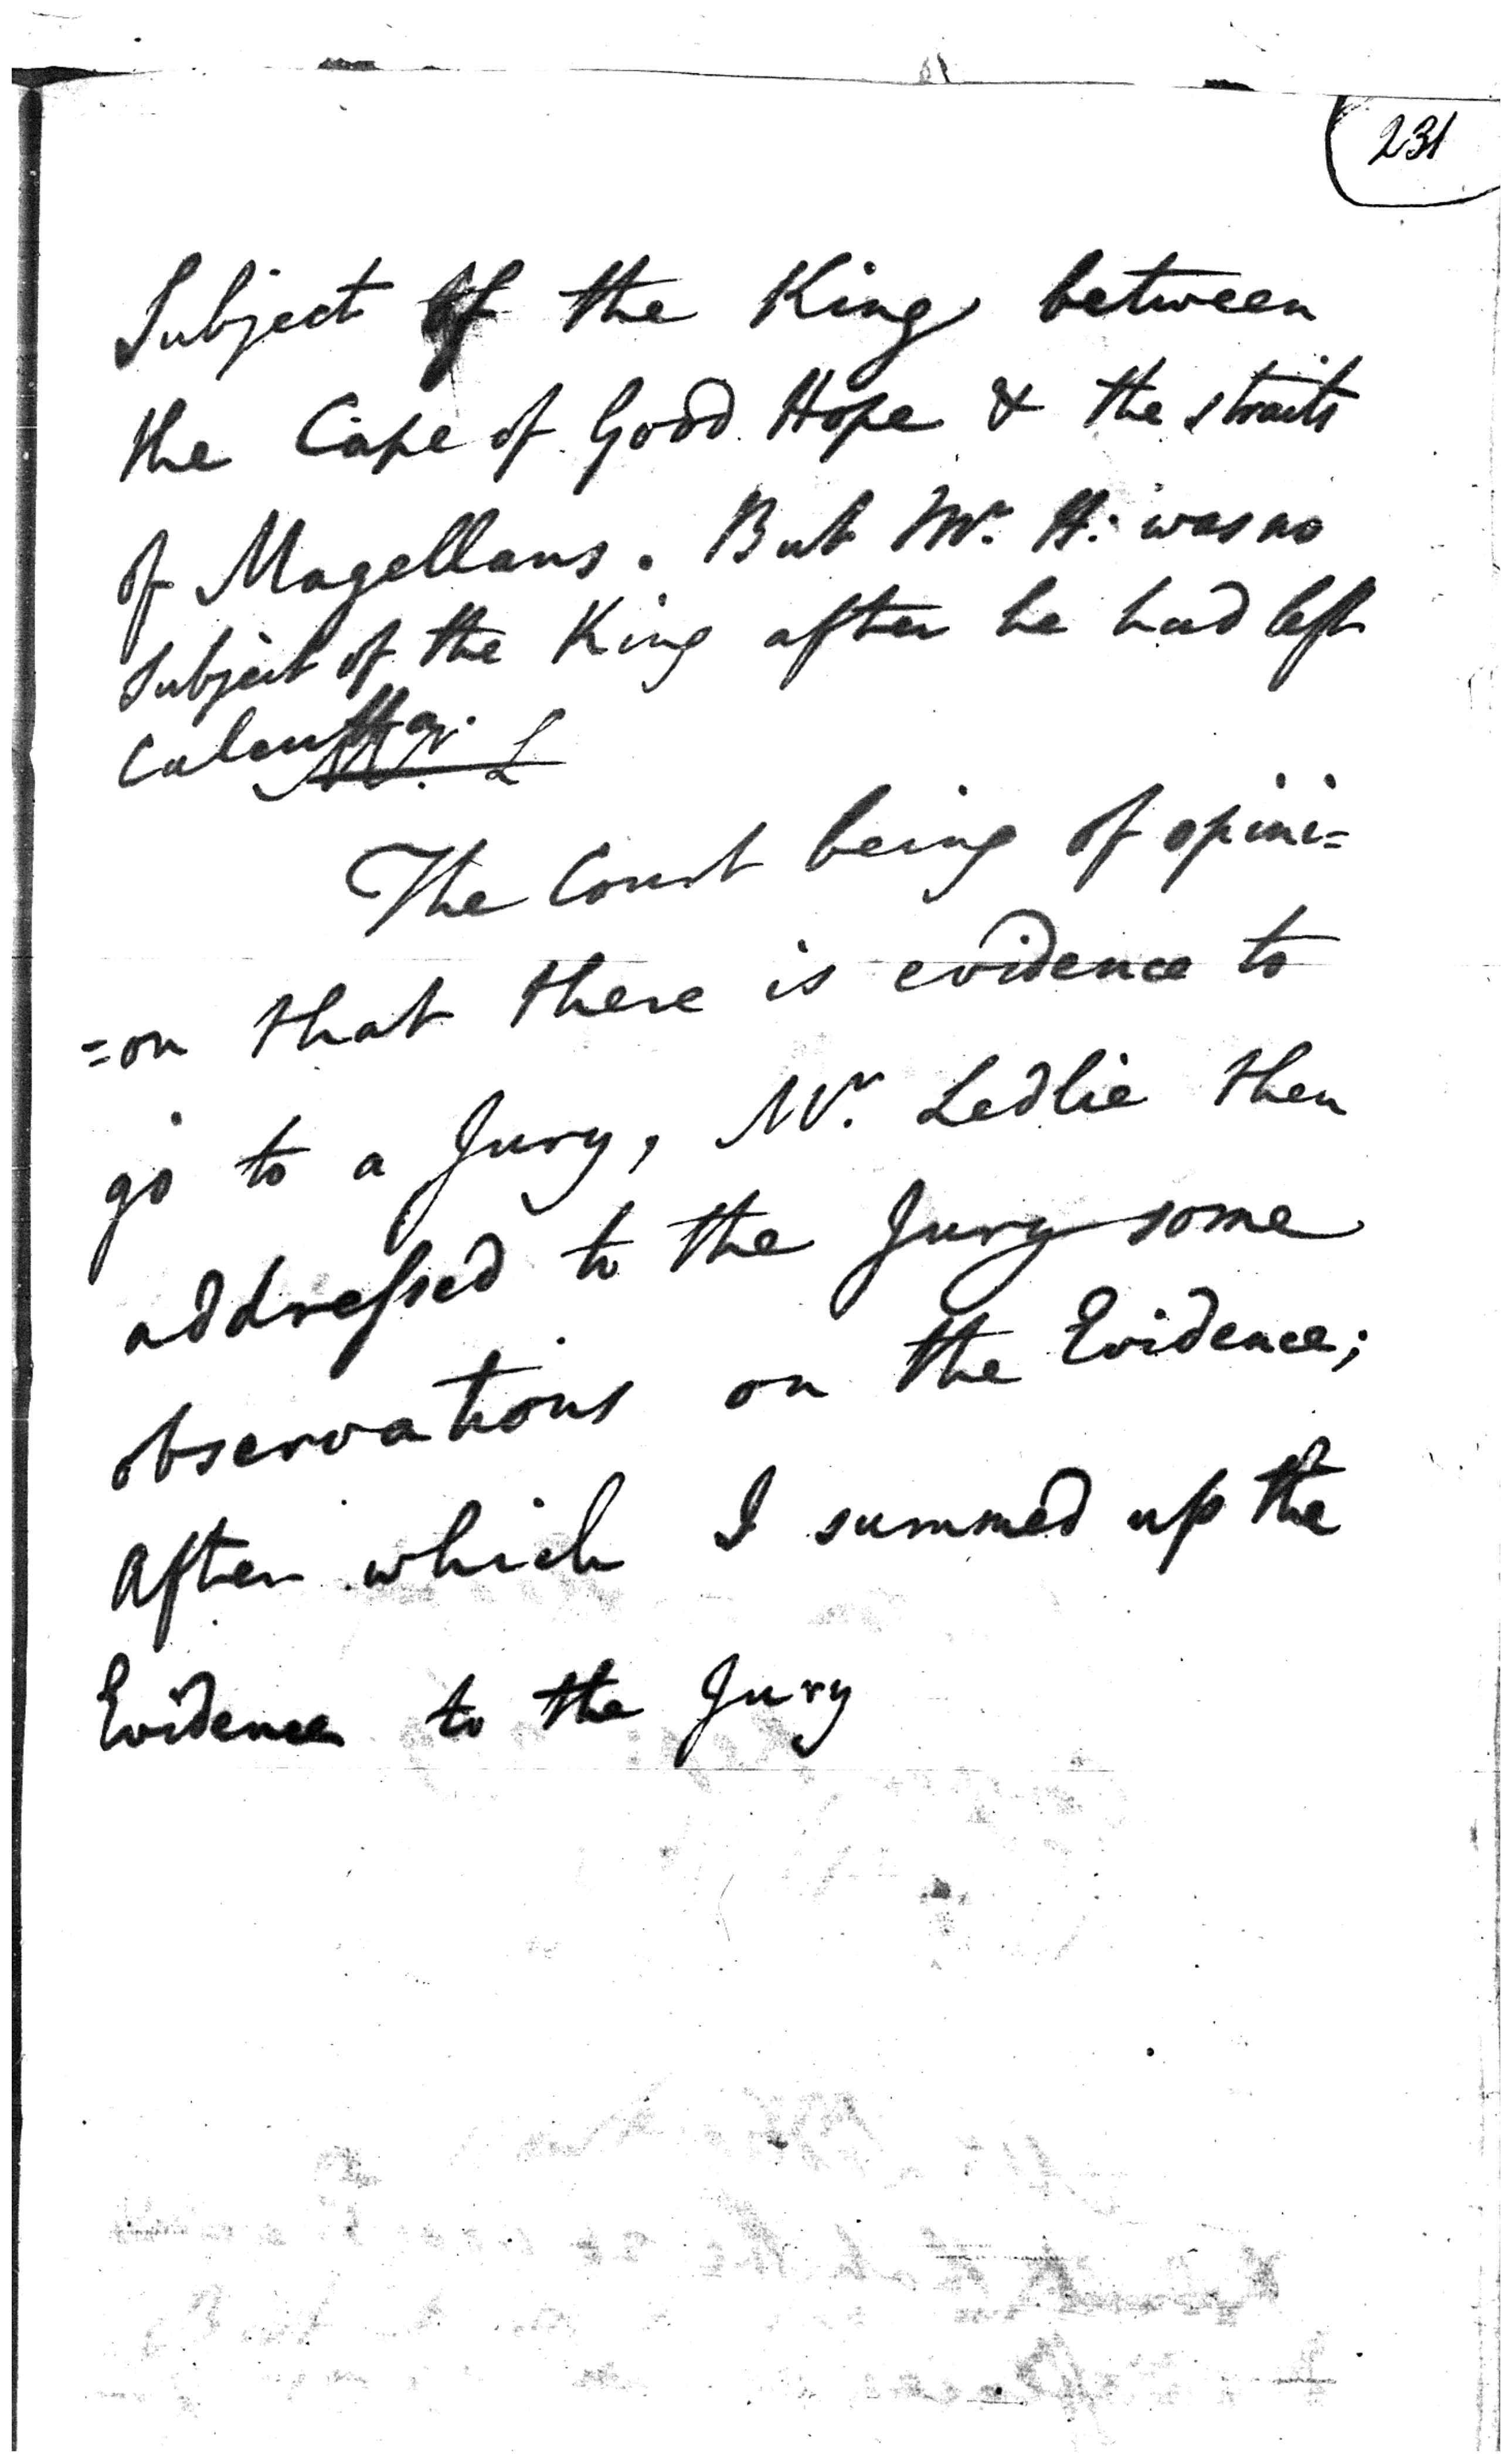 231
Subject of the King between
the Cape of Good Hope & the straits
of Magellans. But Mr. H: was no
subject of the King after he had left
Calcutta.
Mr. L
The Court being of opini=
=on that there is evidence to
go to a Jury, Mr. Ledlie then
addressed to the Jury some
observations on the Evidence;
After which I summed up the
Evidence to the Jury